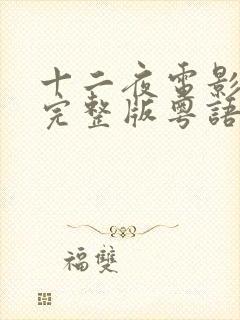 十二夜電影
完整版粵語
福雙